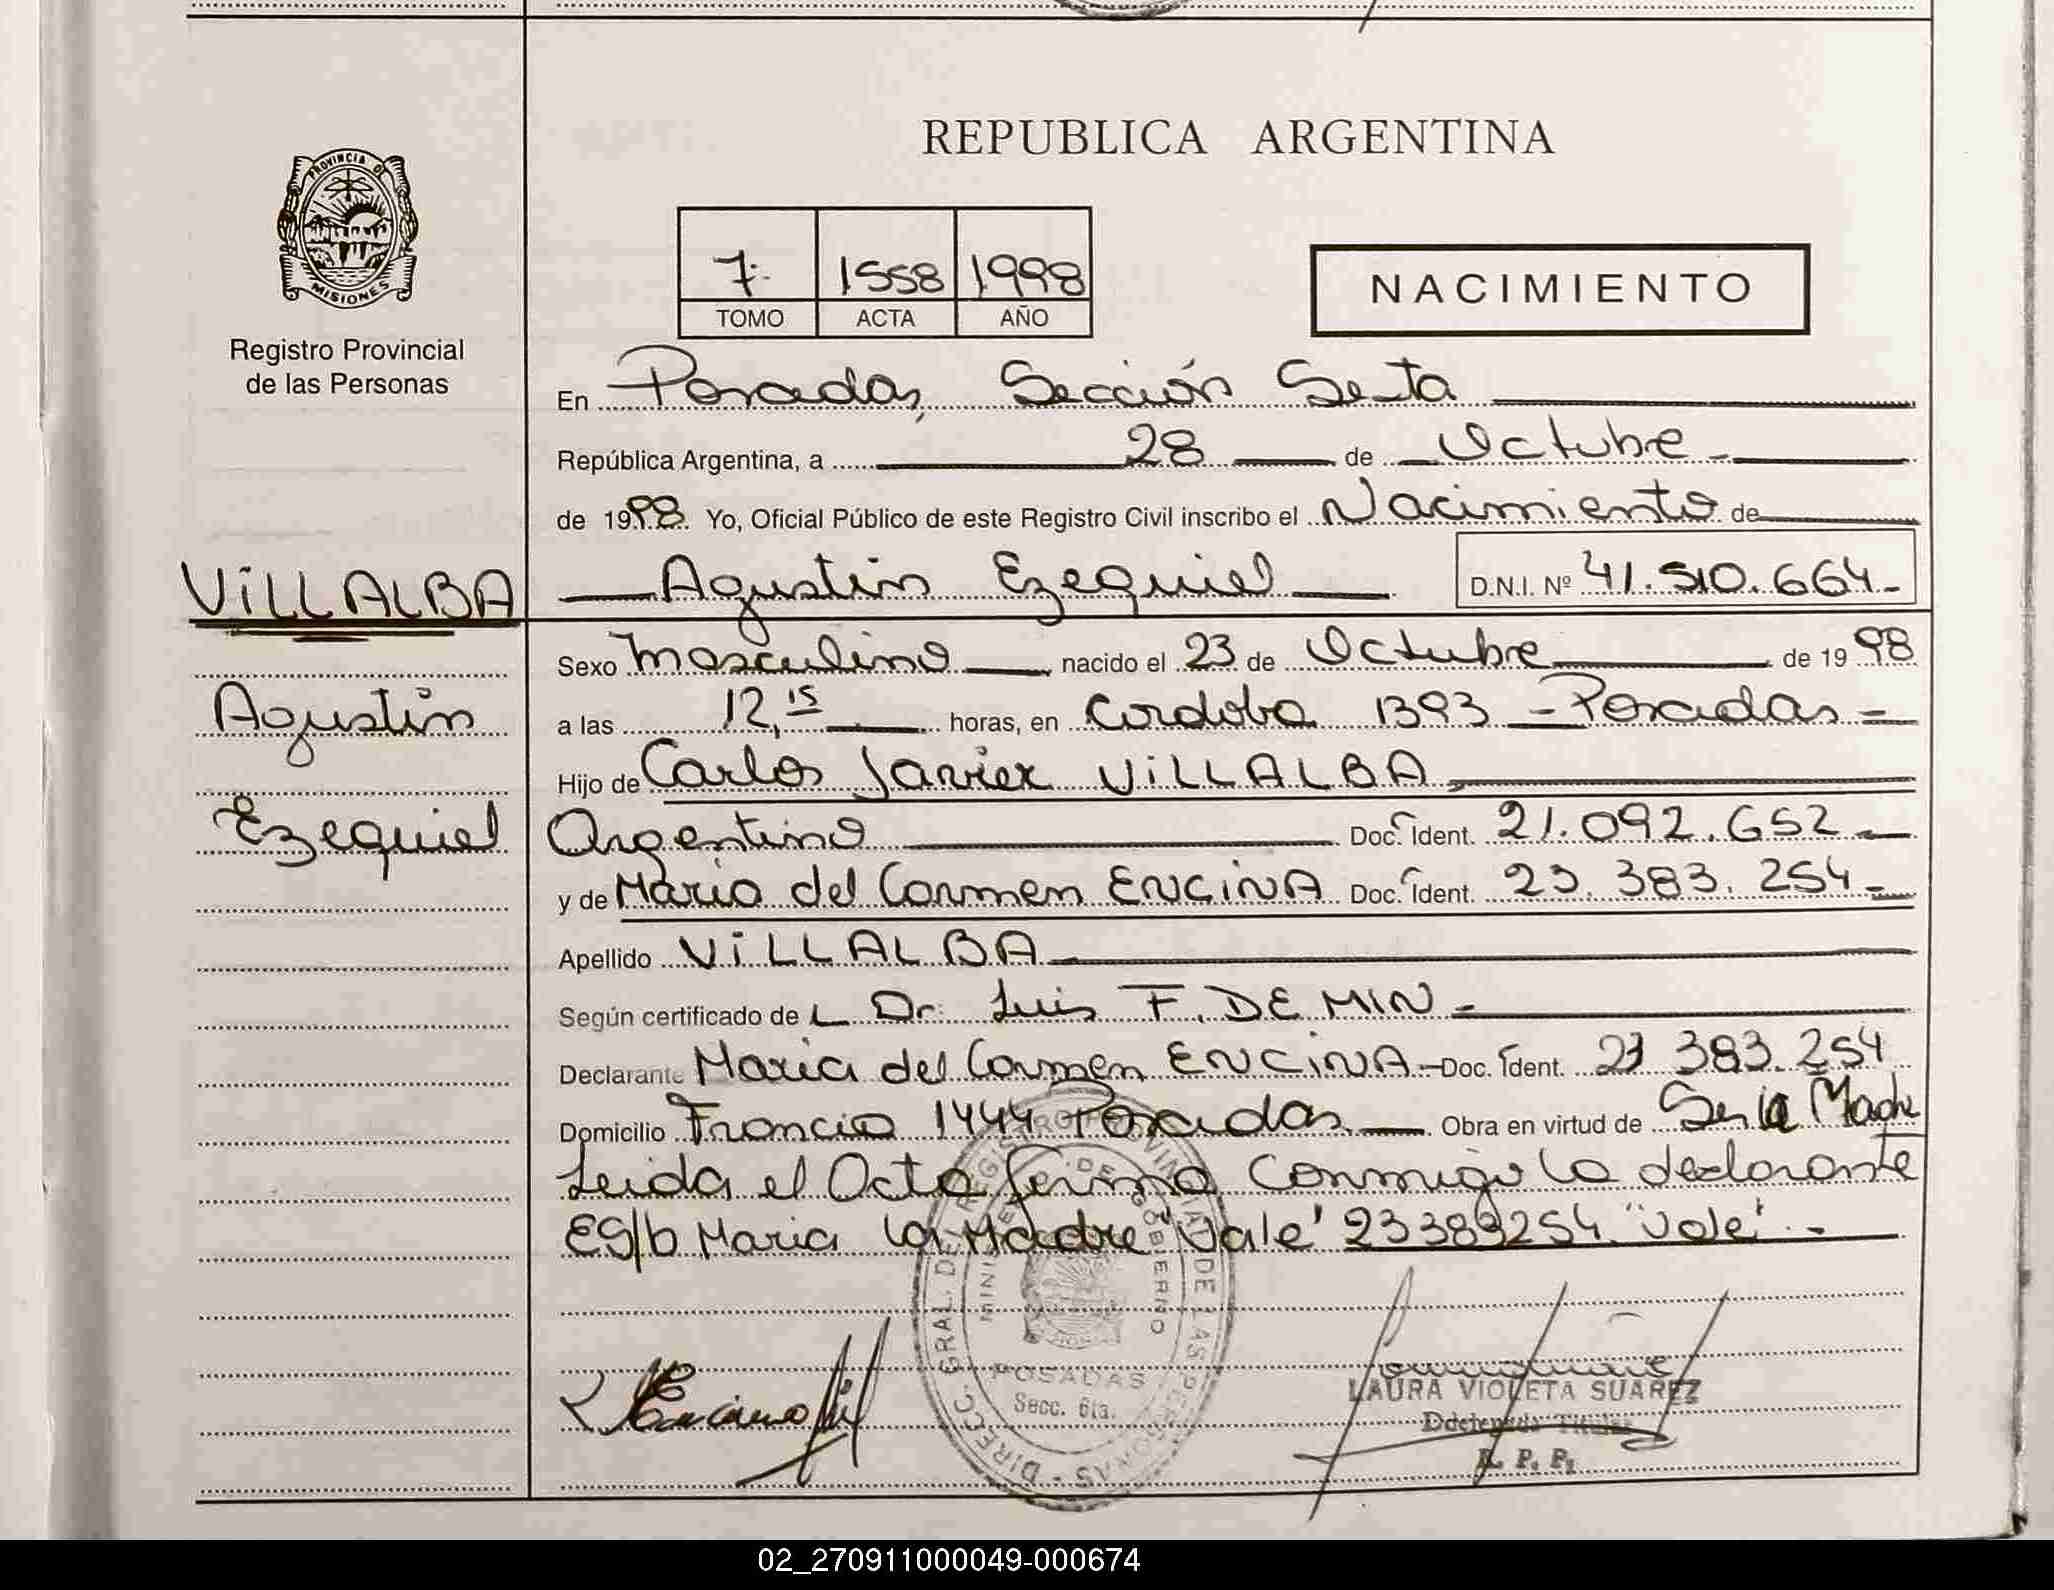 REPUBLICA ARGENTINA
PROVINCIA DE
MISIONES
Registro Provincial
de las Personas
7 1558 1998
TOMO ACTA AÑO
NACIMIENTO
En Posadas, Sección Sexta
República Argentina, a 28 de Octubre
de 1998 Yo, Oficial Público de este Registro Civil inscribo el Nacimiento de
VILLALBA
Agustin Ezequiel D.N.I. Nº 41.510.664-
Agustin
Ezequiel
Sexo Masculino nacido el 23 de Octubre de 1998
a las 12,15 horas, en Cordoba 1393 - Posadas -
Hijo de Carlos Javier VILLALBA
Argentino Doc. Ident. 21.092.652
y de Maria del Carmen ENCINA Doc. Ident. 23.383.254-
Apellido VILLALBA
Según certificado de L Dr. Luis F. DE MIN -
Declarante Maria del Carmen ENCINA - Doc. Ident. 23 383.254
Domicilio Francia 1444 Posadas Obra en virtud de Ser la Madre
Leida el Acta firma Conmigo la declarante
ES/b Maria la Madre "Vale" 23383254. "Vale". -
DIRECC. GRAL. DE REGISTRO PROVINCIAL DE LAS PERSONAS
MINISTERIO DE GOBIERNO
POSADAS
Secc. 6ta.
LAURA VIOLETA SUAREZ
Delegada Titular
R. P. P.
02_270911000049-000674